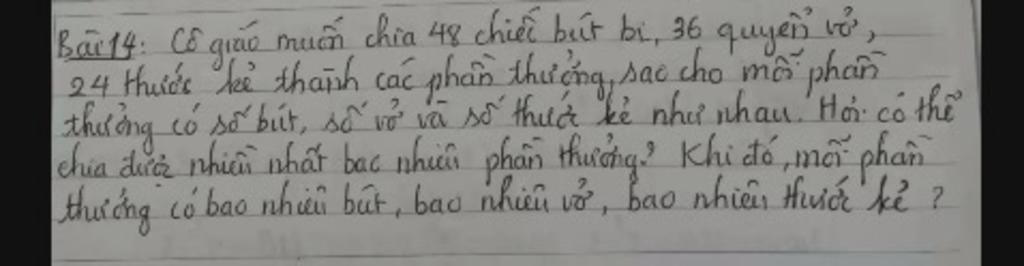 Bài 14: Cô giáo muốn chia 48 chiếc bút bi, 36 quyển vở,
24 thước kẻ thành các phần thưởng, sao cho mỗi phần
thưởng có số bút, số vở và số thước kẻ như nhau. Hỏi có thể
chia được nhiều nhất bao nhiêu phần thưởng? Khi đó, mỗi phần
thưởng có bao nhiêu bút, bao nhiêu vở, bao nhiêu thước kẻ?